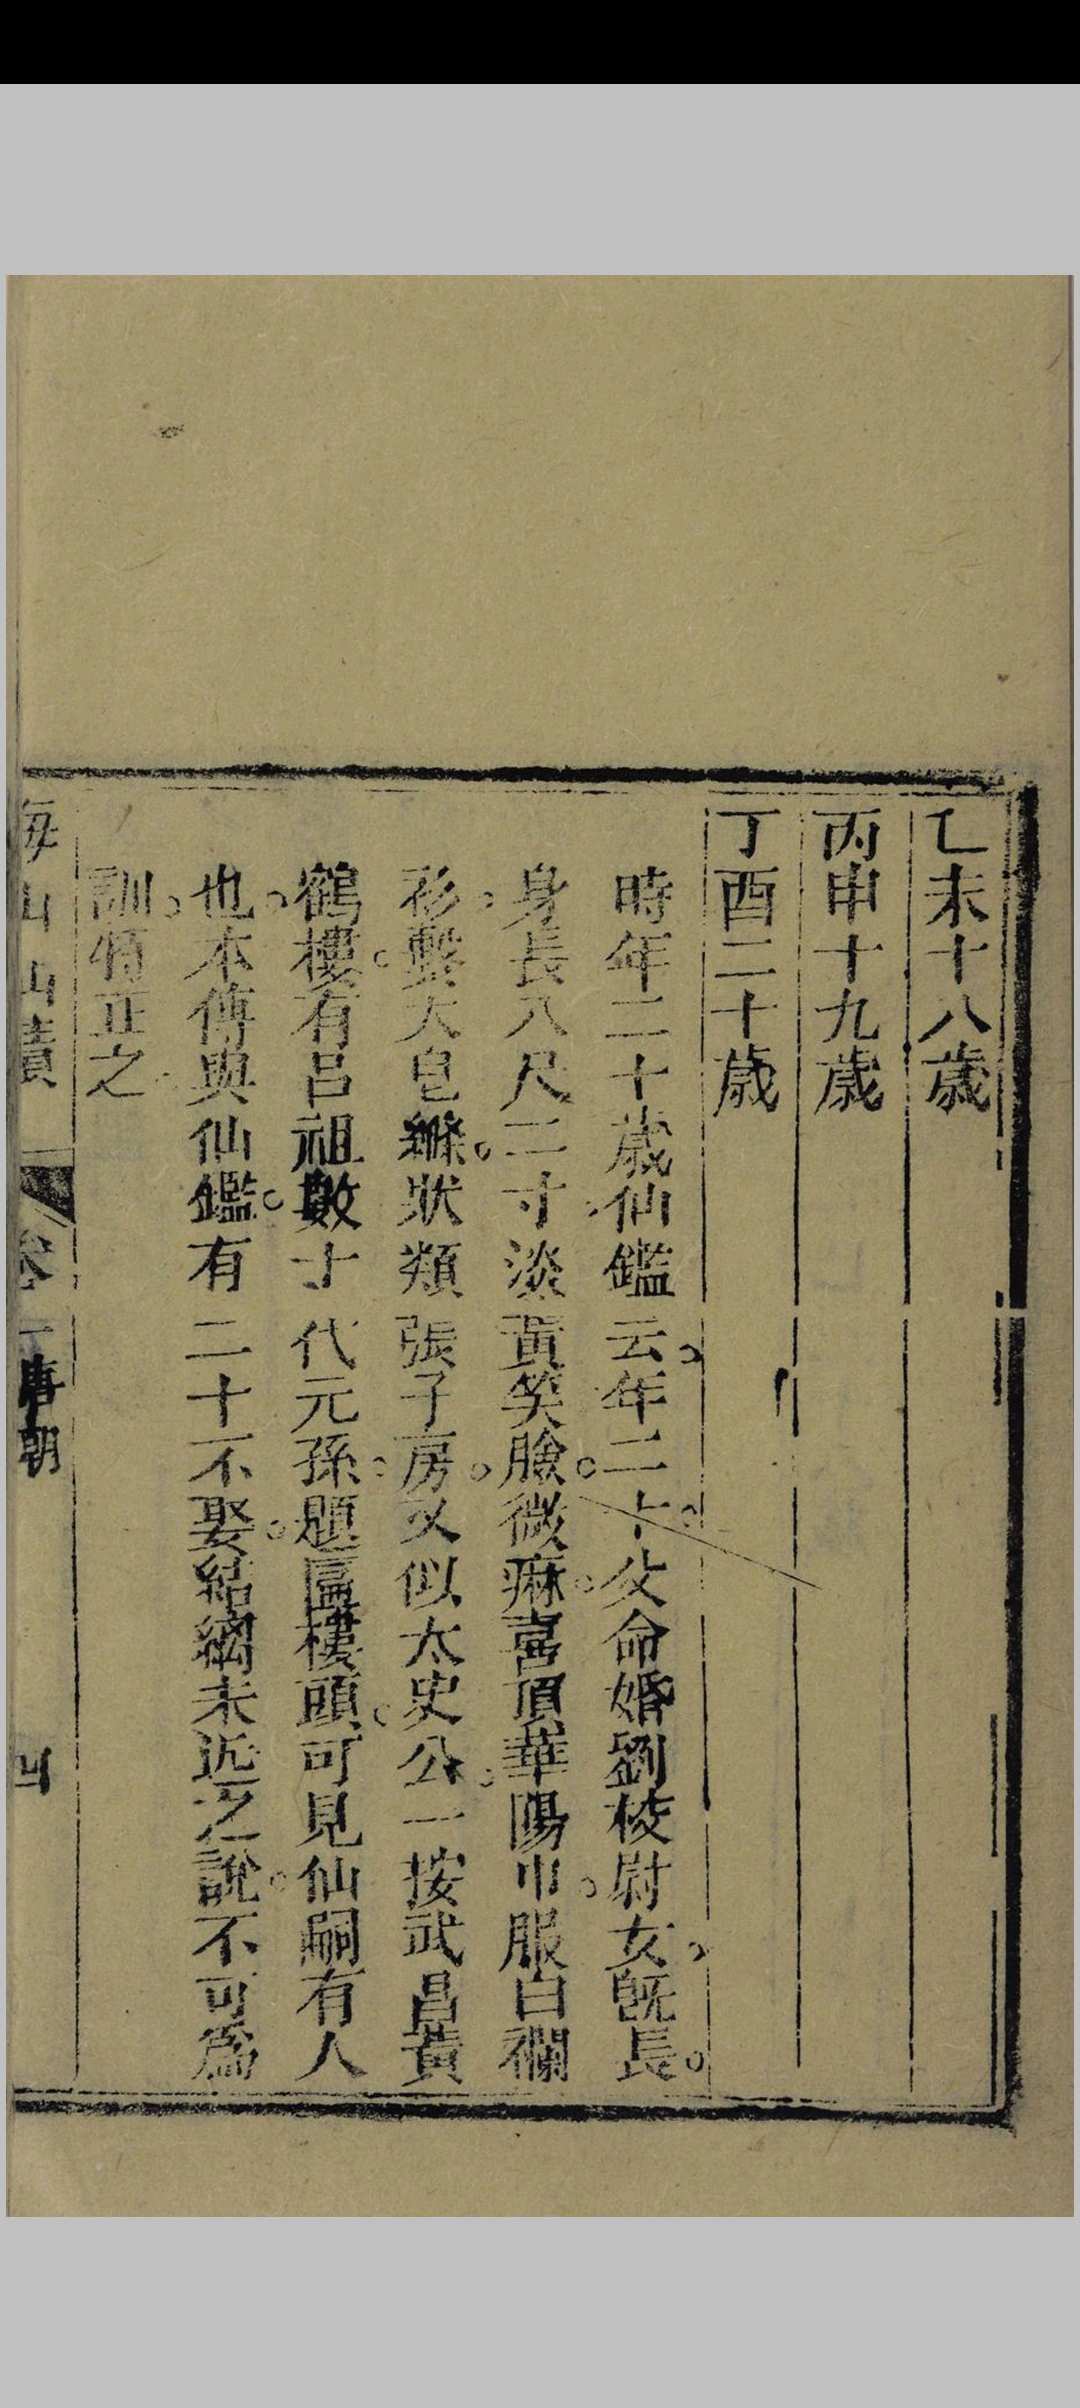 乙未十八歲
丙申十九歲
丁酉二十歲
時年二十歲仙鑑云年二十父命婚劉校尉女旣長
身長八尺二寸淡黃笑臉微麻喜頂華陽巾服白襴
衫繫大皂縧狀類張子房又似太史公一按武昌黃
鶴樓有呂祖數十代元孫題匾樓頭可見仙嗣有人
也本傳與仙鑑有二十不娶結褵未近之說不可爲
訓特正之
海山 蹟 卷一 唐朝 四